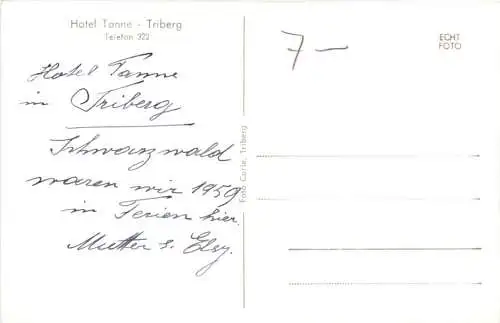 Hotel Tanne - Triberg
Telefon 322
Hotel Tanne
in Triberg
Schwarzwald
waren wir 1959
in Ferien hier.
Mutter s. Elsy.
Foto Carle, Triberg
7 –
ECHT
FOTO